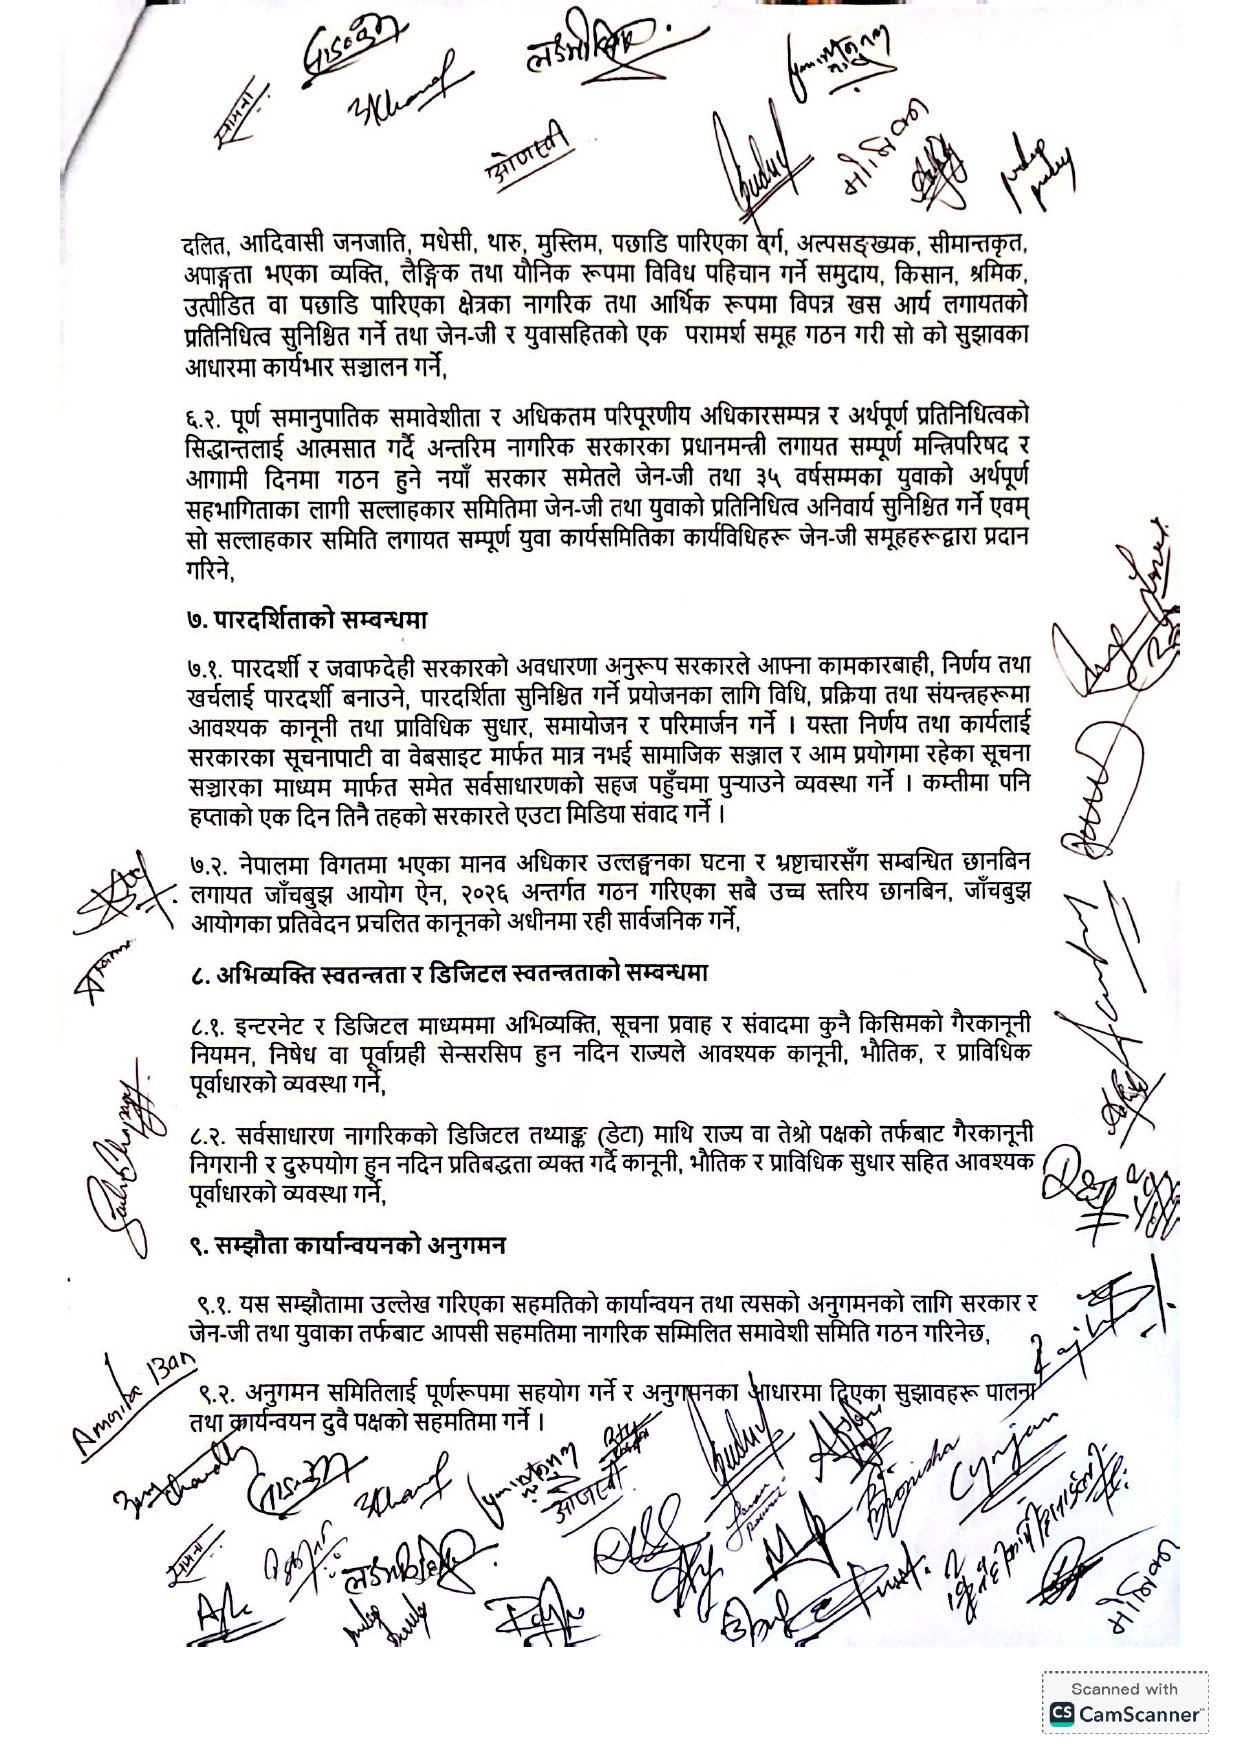 लक्ष्मी
सामना
ओजस्वी
मोनिका
दलित, आदिवासी जनजाति, मधेसी, थारु, मुस्लिम, पछाडि पारिएका वर्ग, अल्पसङ्ख्यक, सीमान्तकृत,
अपाङ्गता भएका व्यक्ति, लैङ्गिक तथा यौनिक रूपमा विविध पहिचान गर्ने समुदाय, किसान, श्रमिक,
उत्पीडित वा पछाडि पारिएका क्षेत्रका नागरिक तथा आर्थिक रूपमा विपन्न खस आर्य लगायतको
प्रतिनिधित्व सुनिश्चित गर्ने तथा जेन-जी र युवासहितको एक परामर्श समूह गठन गरी सो को सुझावका
आधारमा कार्यभार सञ्चालन गर्ने,
६.२. पूर्ण समानुपातिक समावेशीता र अधिकतम परिपूरणीय अधिकारसम्पन्न र अर्थपूर्ण प्रतिनिधित्वको
सिद्धान्तलाई आत्मसात गर्दै अन्तरिम नागरिक सरकारका प्रधानमन्त्री लगायत सम्पूर्ण मन्त्रिपरिषद र
आगामी दिनमा गठन हुने नयाँ सरकार समेतले जेन-जी तथा ३५ वर्षसम्मका युवाको अर्थपूर्ण
सहभागिताका लागी सल्लाहकार समितिमा जेन-जी तथा युवाको प्रतिनिधित्व अनिवार्य सुनिश्चित गर्ने एवम्
सो सल्लाहकार समिति लगायत सम्पूर्ण युवा कार्यसमितिका कार्यविधिहरू जेन-जी समूहहरूद्वारा प्रदान
गरिने,
७. पारदर्शिताको सम्बन्धमा
७.१. पारदर्शी र जवाफदेही सरकारको अवधारणा अनुरूप सरकारले आफ्ना कामकारबाही, निर्णय तथा
खर्चलाई पारदर्शी बनाउने, पारदर्शिता सुनिश्चित गर्ने प्रयोजनका लागि विधि, प्रक्रिया तथा संयन्त्रहरूमा
आवश्यक कानूनी तथा प्राविधिक सुधार, समायोजन र परिमार्जन गर्ने । यस्ता निर्णय तथा कार्यलाई
सरकारका सूचनापाटी वा वेबसाइट मार्फत मात्र नभई सामाजिक सञ्जाल र आम प्रयोगमा रहेका सूचना
सञ्चारका माध्यम मार्फत समेत सर्वसाधारणको सहज पहुँचमा पुऱ्याउने व्यवस्था गर्ने । कम्तीमा पनि
हप्ताको एक दिन तिनै तहको सरकारले एउटा मिडिया संवाद गर्ने ।
७.२. नेपालमा विगतमा भएका मानव अधिकार उल्लङ्घनका घटना र भ्रष्टाचारसँग सम्बन्धित छानबिन
लगायत जाँचबुझ आयोग ऐन, २०२६ अन्तर्गत गठन गरिएका सबै उच्च स्तरिय छानबिन, जाँचबुझ
आयोगका प्रतिवेदन प्रचलित कानूनको अधीनमा रही सार्वजनिक गर्ने,
८. अभिव्यक्ति स्वतन्त्रता र डिजिटल स्वतन्त्रताको सम्बन्धमा
८.१. इन्टरनेट र डिजिटल माध्यममा अभिव्यक्ति, सूचना प्रवाह र संवादमा कुनै किसिमको गैरकानूनी
नियमन, निषेध वा पूर्वाग्रही सेन्सरसिप हुन नदिन राज्यले आवश्यक कानूनी, भौतिक, र प्राविधिक
पूर्वाधारको व्यवस्था गर्ने,
८.२. सर्वसाधारण नागरिकको डिजिटल तथ्याङ्क (डेटा) माथि राज्य वा तेश्रो पक्षको तर्फबाट गैरकानूनी
निगरानी र दुरुपयोग हुन नदिन प्रतिबद्धता व्यक्त गर्दै कानूनी, भौतिक र प्राविधिक सुधार सहित आवश्यक
पूर्वाधारको व्यवस्था गर्ने,
९. सम्झौता कार्यान्वयनको अनुगमन
९.१. यस सम्झौतामा उल्लेख गरिएका सहमतिको कार्यान्वयन तथा त्यसको अनुगमनको लागि सरकार र
जेन-जी तथा युवाका तर्फबाट आपसी सहमतिमा नागरिक सम्मिलित समावेशी समिति गठन गरिनेछ,
९.२. अनुगमन समितिलाई पूर्णरूपमा सहयोग गर्ने र अनुगमनका आधारमा दिएका सुझावहरू पालना
तथा कार्यन्वयन दुवै पक्षको सहमतिमा गर्ने ।
Amrita Ban
ओजस्वी
सामना
Scanned with
CS CamScanner